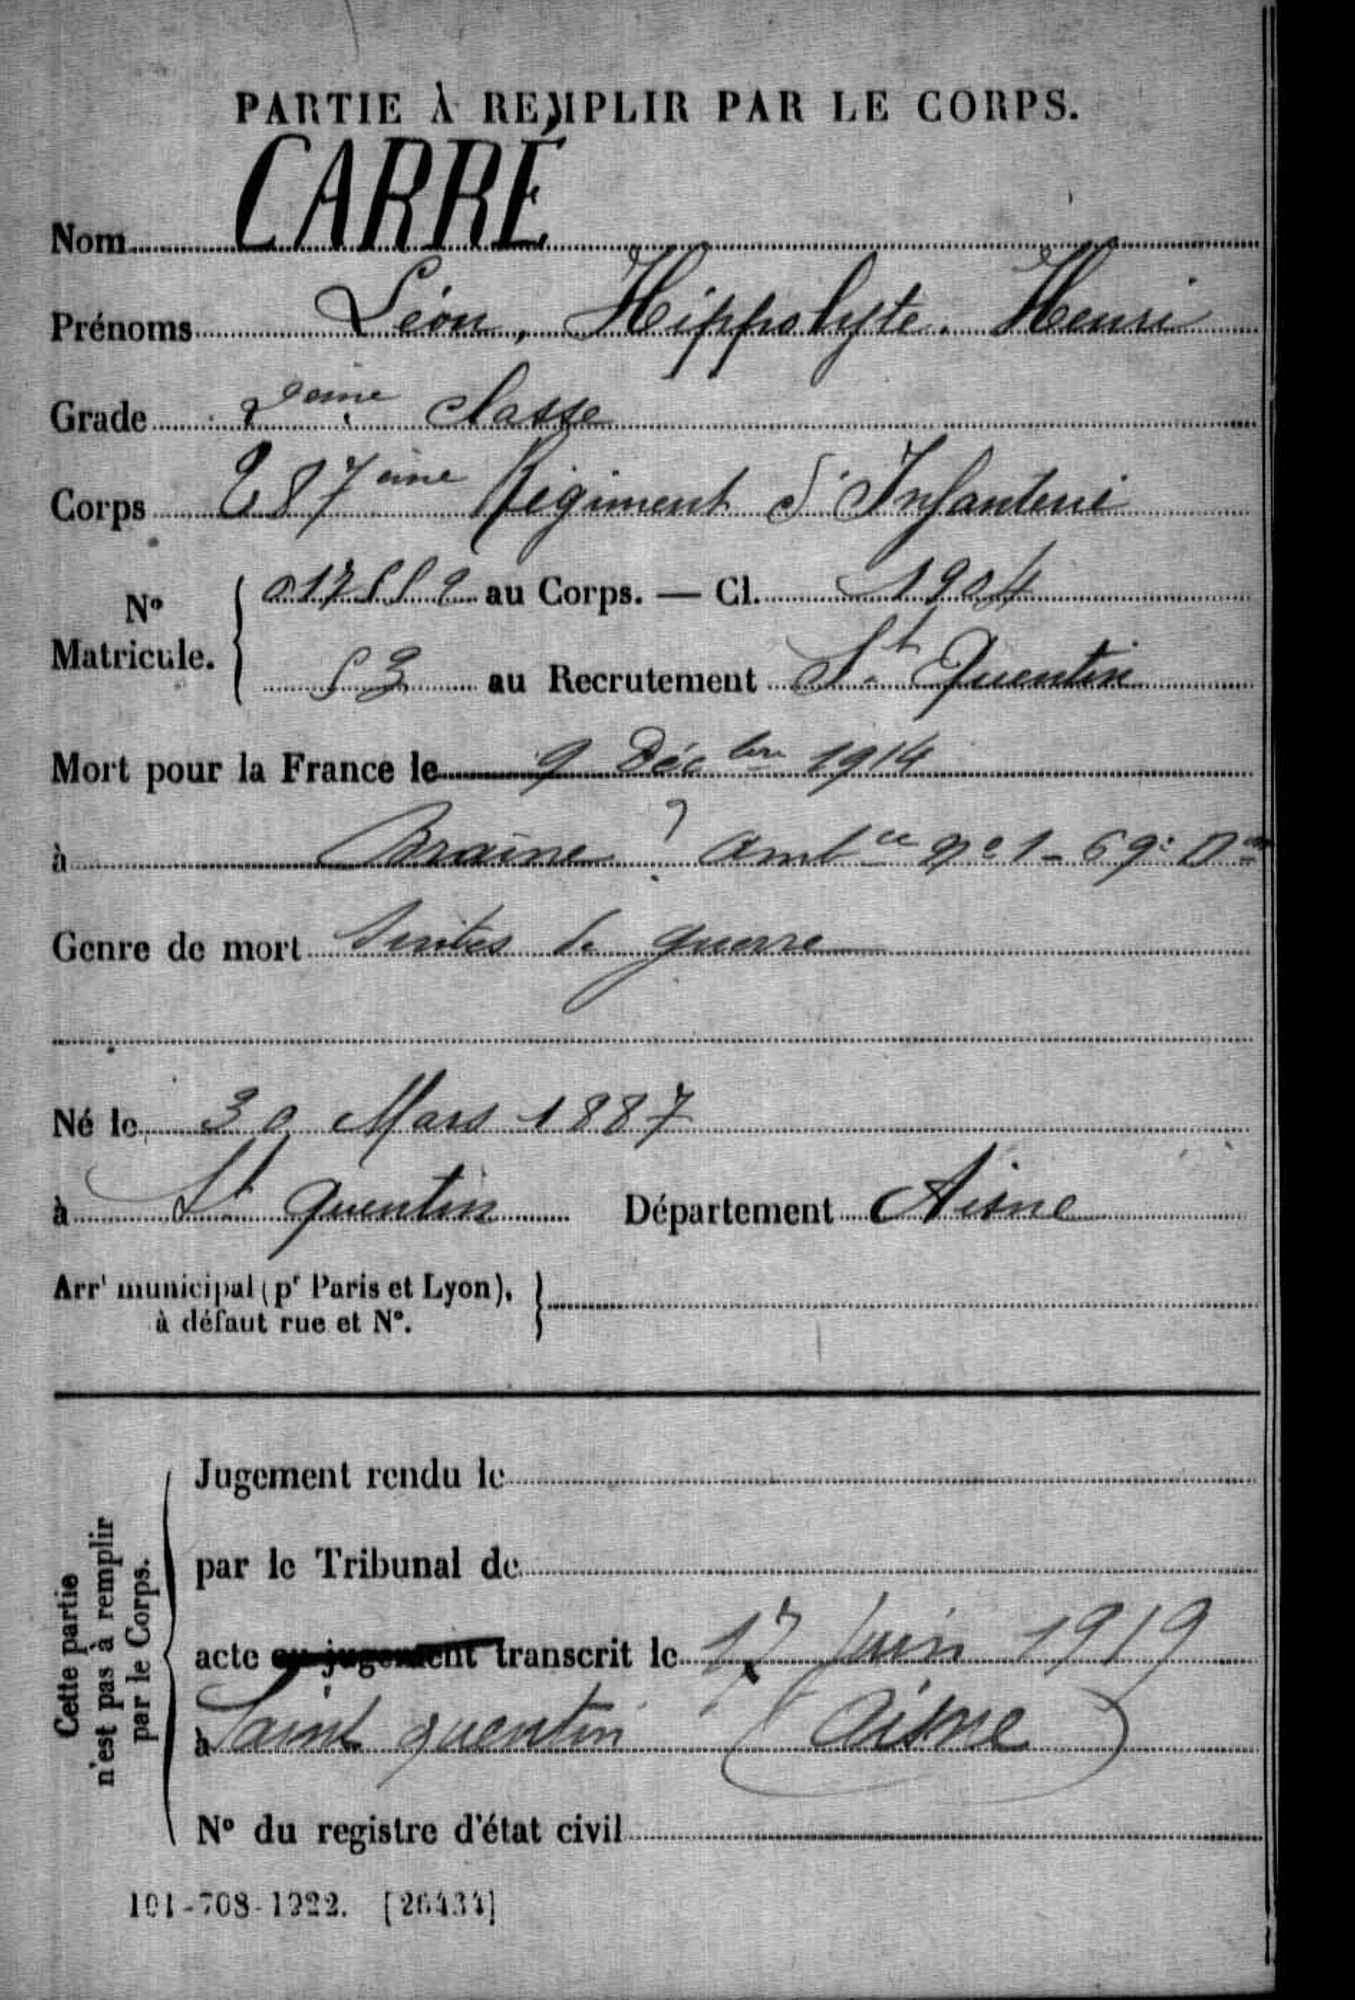 PARTIE À REMPLIR PAR LE CORPS.
Nom CARRÉ
Prénoms Léon, Hippolyte. Henri
Grade 2eme classe
Corps 287eme Régiment d'Infanterie
No Matricule.
au Corps. — Cl. 1904
53 au Recrutement St Quentin
Mort pour la France le 9 Décbre 1914
à Braine ? Ambce No 1 - 69e Don
Genre de mort Suites de guerre
Né le 30 Mars 1887
à St Quentin Département Aisne
Arrt municipal (pr Paris et Lyon),
à défaut rue et No.
Cette partie
n'est pas à remplir
par le Corps.
Jugement rendu le
par le Tribunal de
acte ou jugement transcrit le 17 Juin 1919
à Saint quentin (Aisne)
No du registre d'état civil
101-708-1922. [26434]